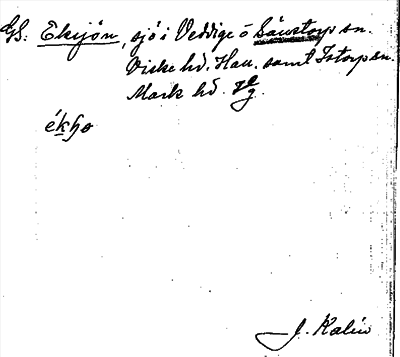 GS: Eksjön, sjö i Veddige o Sänstorp sn.
Viske hd. Hall. samt Istorp sn.
Mark hd. Vg.
ékho
J. Kalén